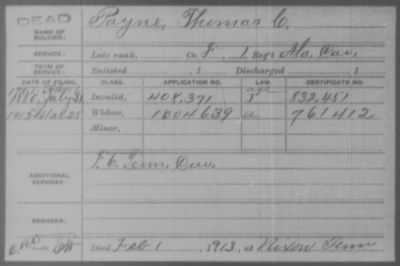 DEAD
NAME OF SOLDIER:
Payne, Thomas C.
SERVICE:
Late rank, Co. F, 1 Reg't Ala. Cav.
TERM OF SERVICE:
Enlisted , 1 Discharged , 1
DATE OF FILING. CLASS. APPLICATION NO. LAW. CERTIFICATE NO.
1880, July 31 Invalid, 408,391 832,451
1913 Mar 25 Widow, 1004639 a 761412
Minor,
ADDITIONAL SERVICES:
F. 6 Tenn. Cav.
REMARKS:
Died Feb 1, 1913, at Nixon Tenn